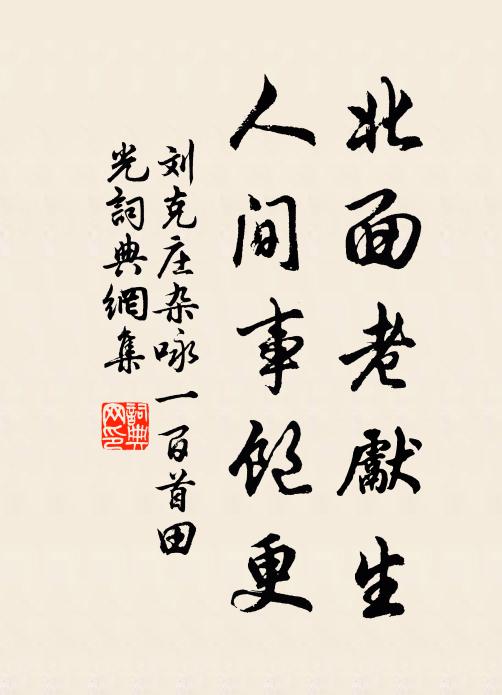 北面老獻生
人间事飽更
刘克庄杂咏一百首田
光詞典網集
詞典網印